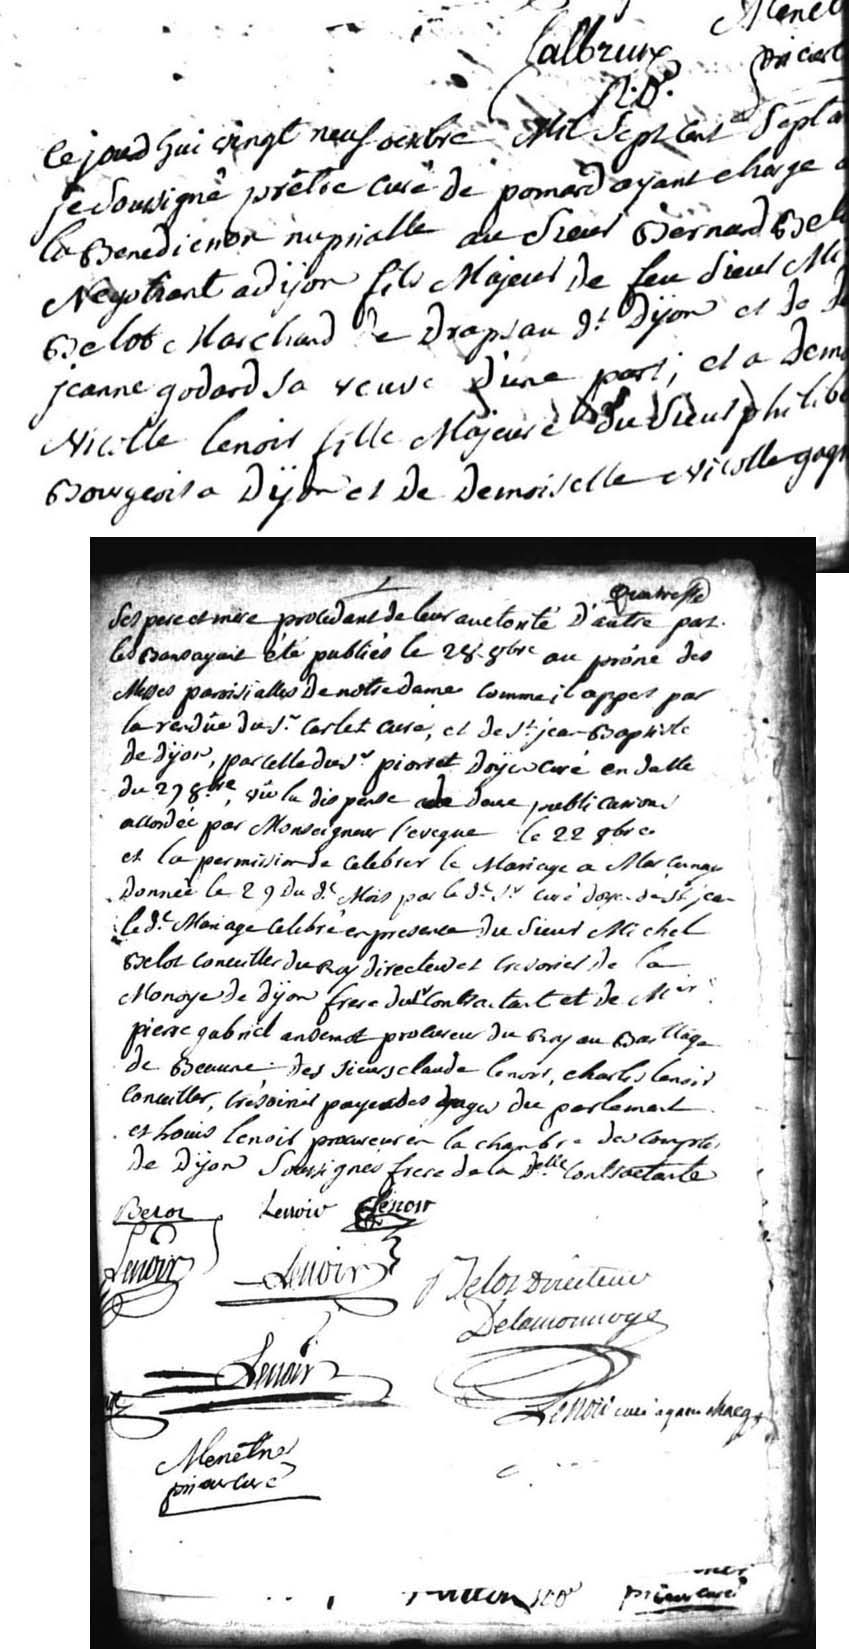 Menet
Lalbrux
N.D.
pricur
Cejourdhui vingt neuf octobre Mil Sept Cent Septa
je Soussigné prêtre curé de pomard ayant charge
la Benediction nuptialle au Sieur Bernard Bel
Negotiant a dijon fils Majeur de feu Sieur Mi
Belot Marchand de Drapeau dt Dijon et de d
jeanne godard Sa veuve d'une part; et a dem
Nicolle lenoir fille Majeure du Sieur philibe
Bourgeois a Dijon et de Demoiselle Nicolle gagn
Ses pere et mere procedant de leur auctorité D'autre part.
les Bans ayant été publiés le 28 8bre au prône des
Messes paroisialles de notre dame comme il appert par
la rendüe du Sr Carlet Curé, et de St jean Baptiste
de dijon, par celle du Sr piorret Doyen curé en datte
du 29 8bre, vû la dispense de deux publications
accordée par Monseigneur l'eveque le 22 8bre
et la permission de Celebrer le Mariage a Marcenay
Donnée le 29 du dt Mois par le dt Sr Curé doyen de St jean
le dt Mariage Celebré en presence du Sieur Michel
Belot Conceiller du Roy directeur et tresorier de la
Monoye de Dijon frere du Contractant et de Mr
pierre gabriel procureur du Roy au Bailliage
de Beaune des sieurs claude lenoir, charles lenoir
Conceiller, trésorier payeur des gages du parlement
et Louis lenoir procureur en la chambre des Comptes
de Dijon Soussignés frere de la Delle Contractante
Belot Lenoir Lenoir
Lenoir Lenoir Belot Directeur
Delamonnoye
Lenoir
Lenoir curé ayant charge
Menetr
prieur curé
prieur curé